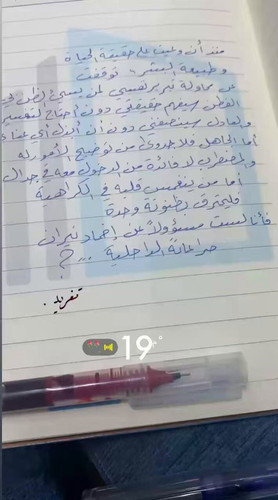 منذ أن وعيت على حقيقة الحياة
وطبيعة البشر.. توقفت
عن محاولة تبرير نفسي لمن يسيئ الظن بي
الفطن سيفهم حقيقتي دون أحتاج لتفسير
والعادل سينصفني دون أن أبذل أي عناء
أما الجاهل فلا جدوى من توضيح الأمور له
والمضطرب لا فائدة من الدخول معه في جدال
أما من ينغمس قلبه في الكراهية
فليحترق بظنونه وحده
فأنا لست مسؤولاً عن إخماد نيران
صراعاته الداخلية ...
تغريد.
19